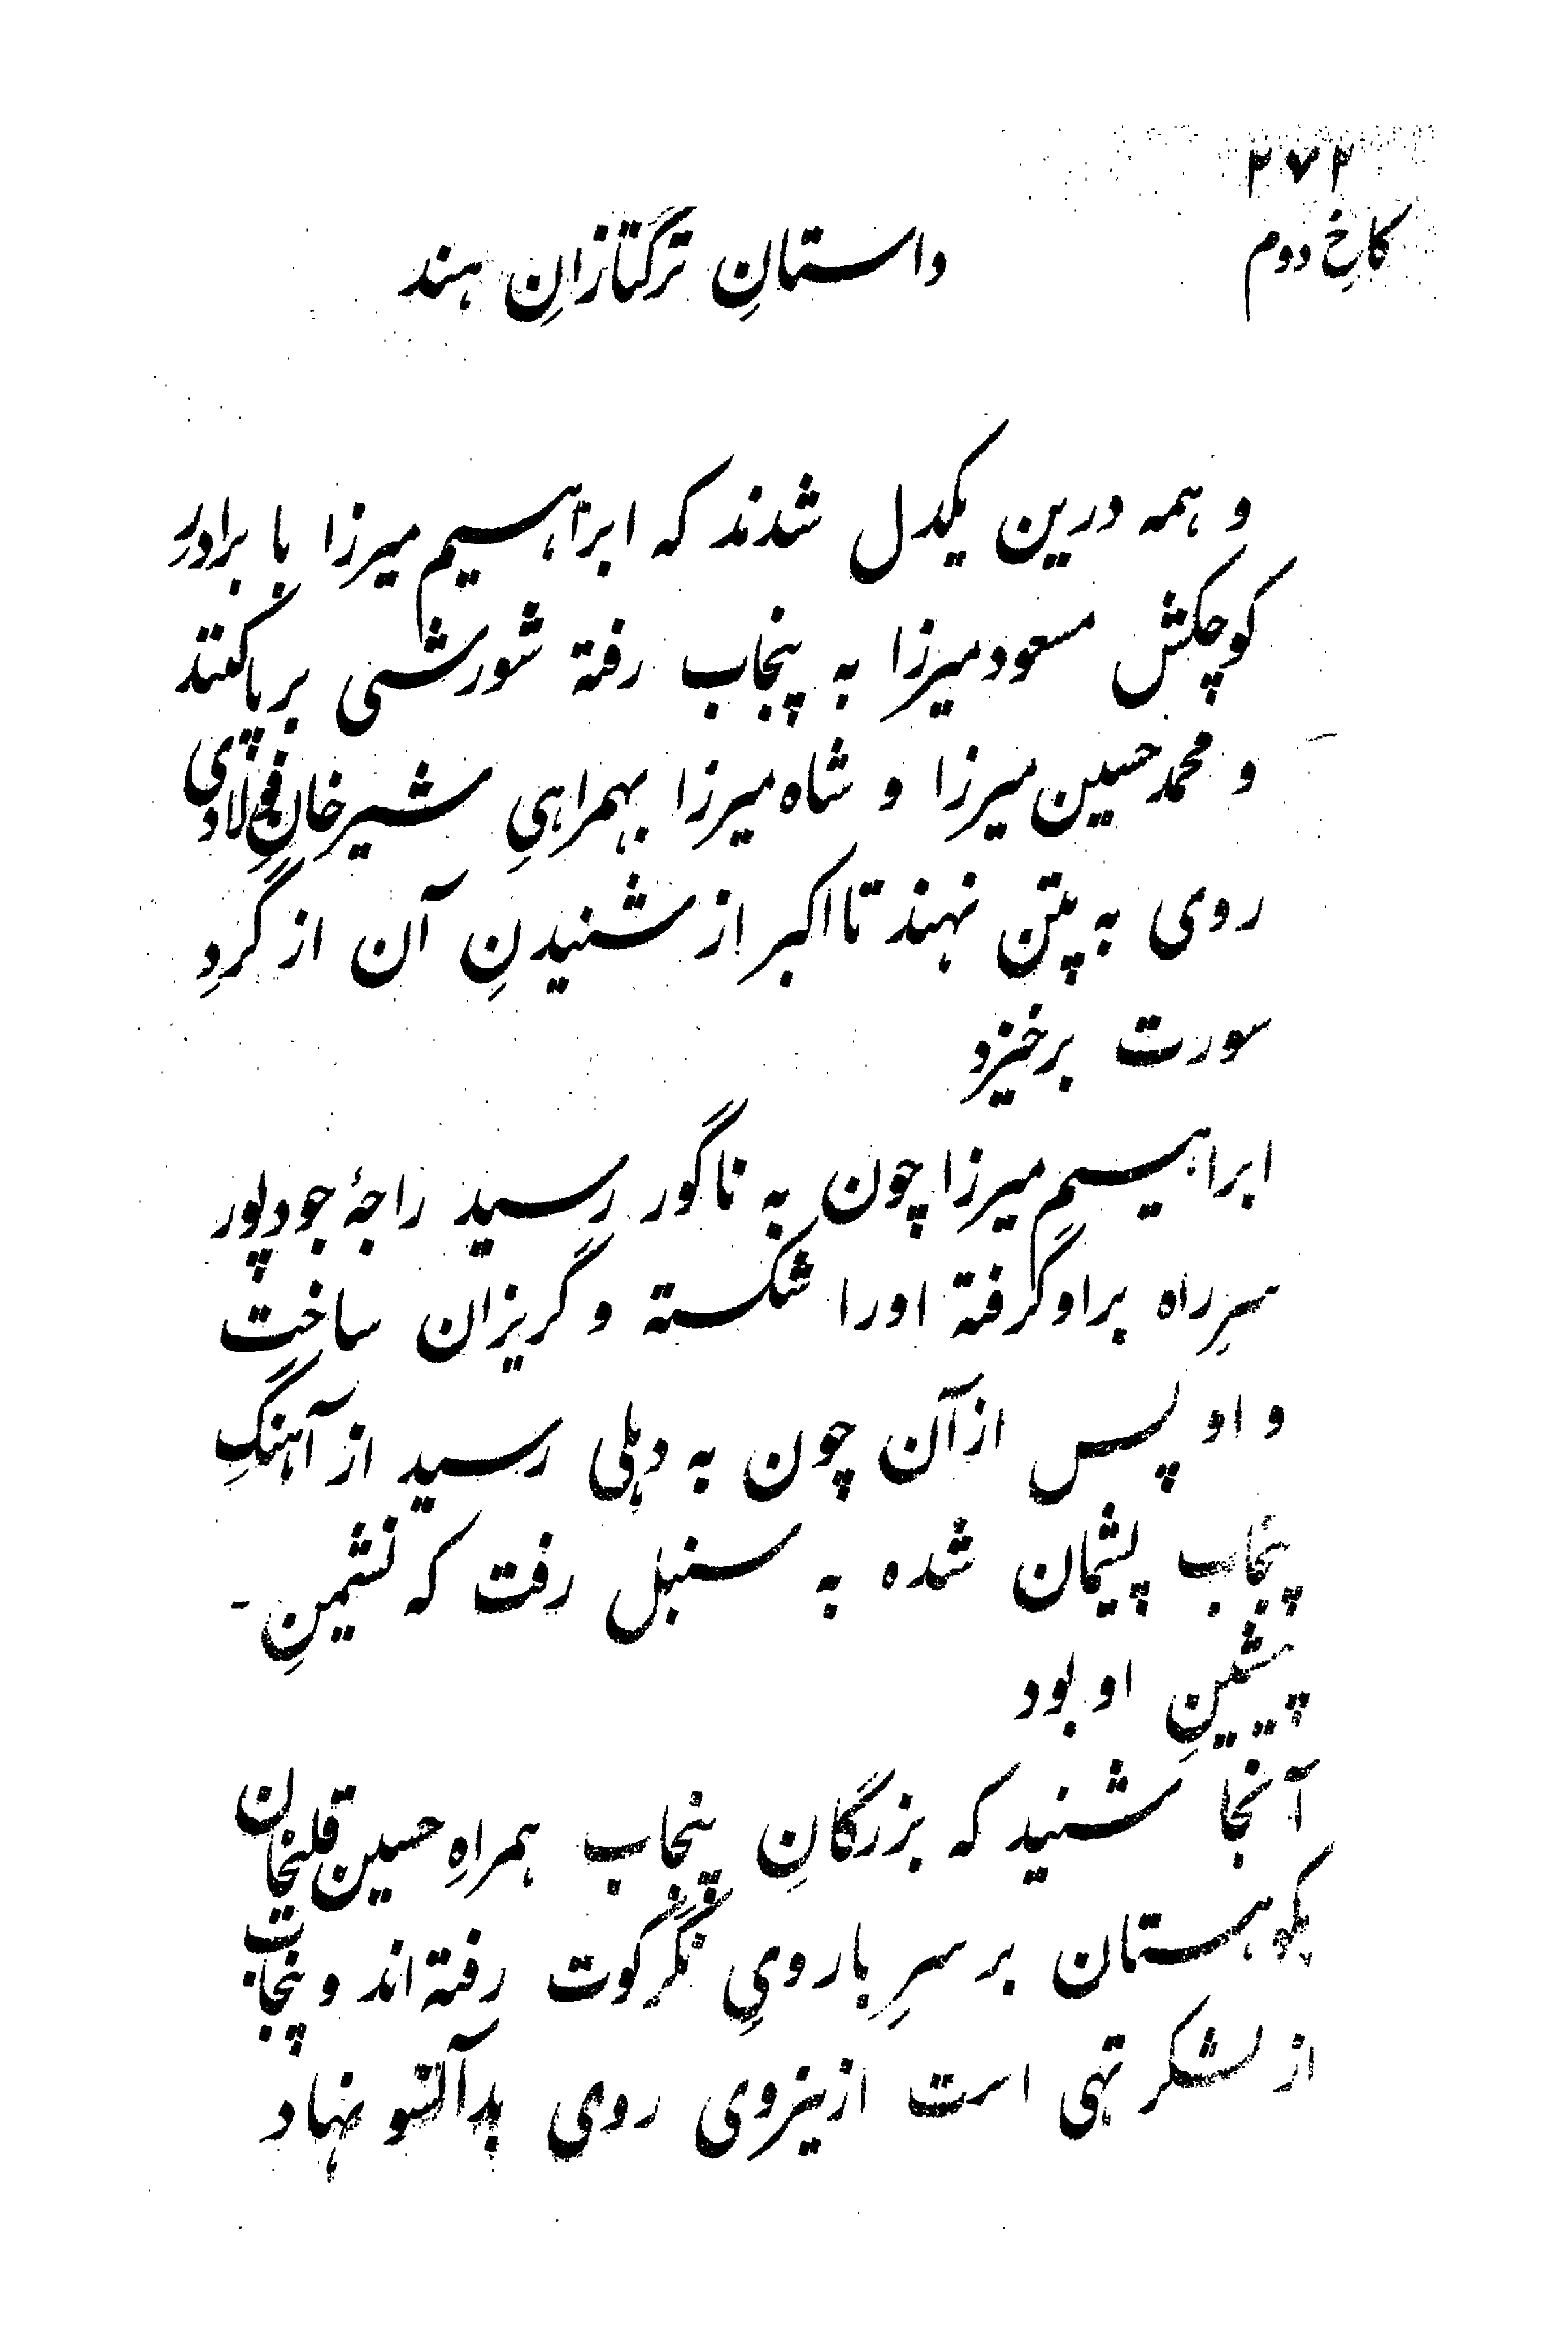 ۲۷۲
کاخِ دوم
داستانِ ترکتازانِ هند
و همه درین یکدل شدند که ابراهیم میرزا با برادرِ
کوچکش مسعود میرزا به پنجاب رفتة شورشی برپا کنند
و محمد حسین میرزا و شاه میرزا بهمراهیِ شیر خان فولادی
روی به پتن نهند تا اکبر از شنیدنِ آن از گردِ
سورت برخیزد
ابراهیم میرزا چون به ناگور رسید راجۀ جودپور
سرِ راه بر او گرفتة اورا شکسته و گریزان ساخت
و او پس از آن چون به دهلی رسید از آهنگِ
پنجاب پشیمان شده به سنبل رفت که نشیمنِ -
پیشینِ او بود
آنجا شنید که بزرگانِ پنجاب همراهِ حسین قلیخان
بکوهستان بر سرِ بارویِ نگرکوت رفتة اند و پنجاب
از لشکر تهی است ازینروی روی بدآنسو نهاد